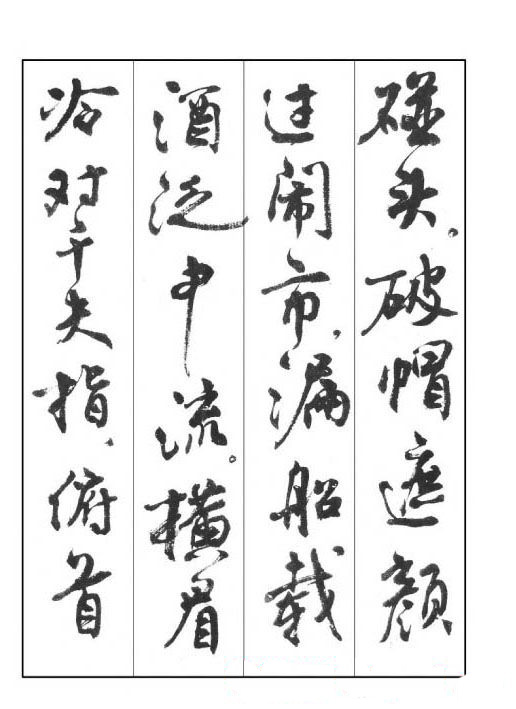 碰头。破帽遮颜
过闹市，漏船载
酒泛中流。横眉
冷对千夫指，俯首